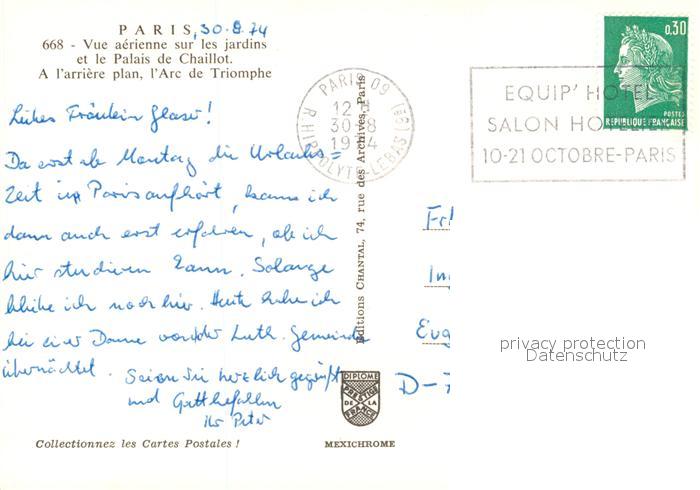 PARIS, 30.8.74
668 - Vue aérienne sur les jardins
et le Palais de Chaillot.
A l'arrière plan, l'Arc de Triomphe
Liebes Fräulein Glaser!
Da erst ab Montag die Urlaubs=
zeit in Paris aufhört, kann ich
dann auch erst erfahren, ob ich
hier studieren kann. Solange
bleibe ich noch hier. Heute habe ich
bei einer Dame von der Luth. Gemeinde
übernachtet. Seien Sie herzlich gegrüßt
und Gott befohlen
Ihr Peter
Collectionnez les Cartes Postales !
MEXICHROME
Editions CHANTAL, 74, rue des Archives, Paris
DIPLOME
PRESTIGE
DE LA
FRANCE
PARIS 09
12 H
30-8
1974
R.HIPPOLYTE-LEBAS (9E)
EQUIP' HOTEL
SALON HOTELIER
10-21 OCTOBRE-PARIS
0,30
POSTES
REPUBLIQUE FRANCAISE
Eug
D-7
privacy protection
Datenschutz